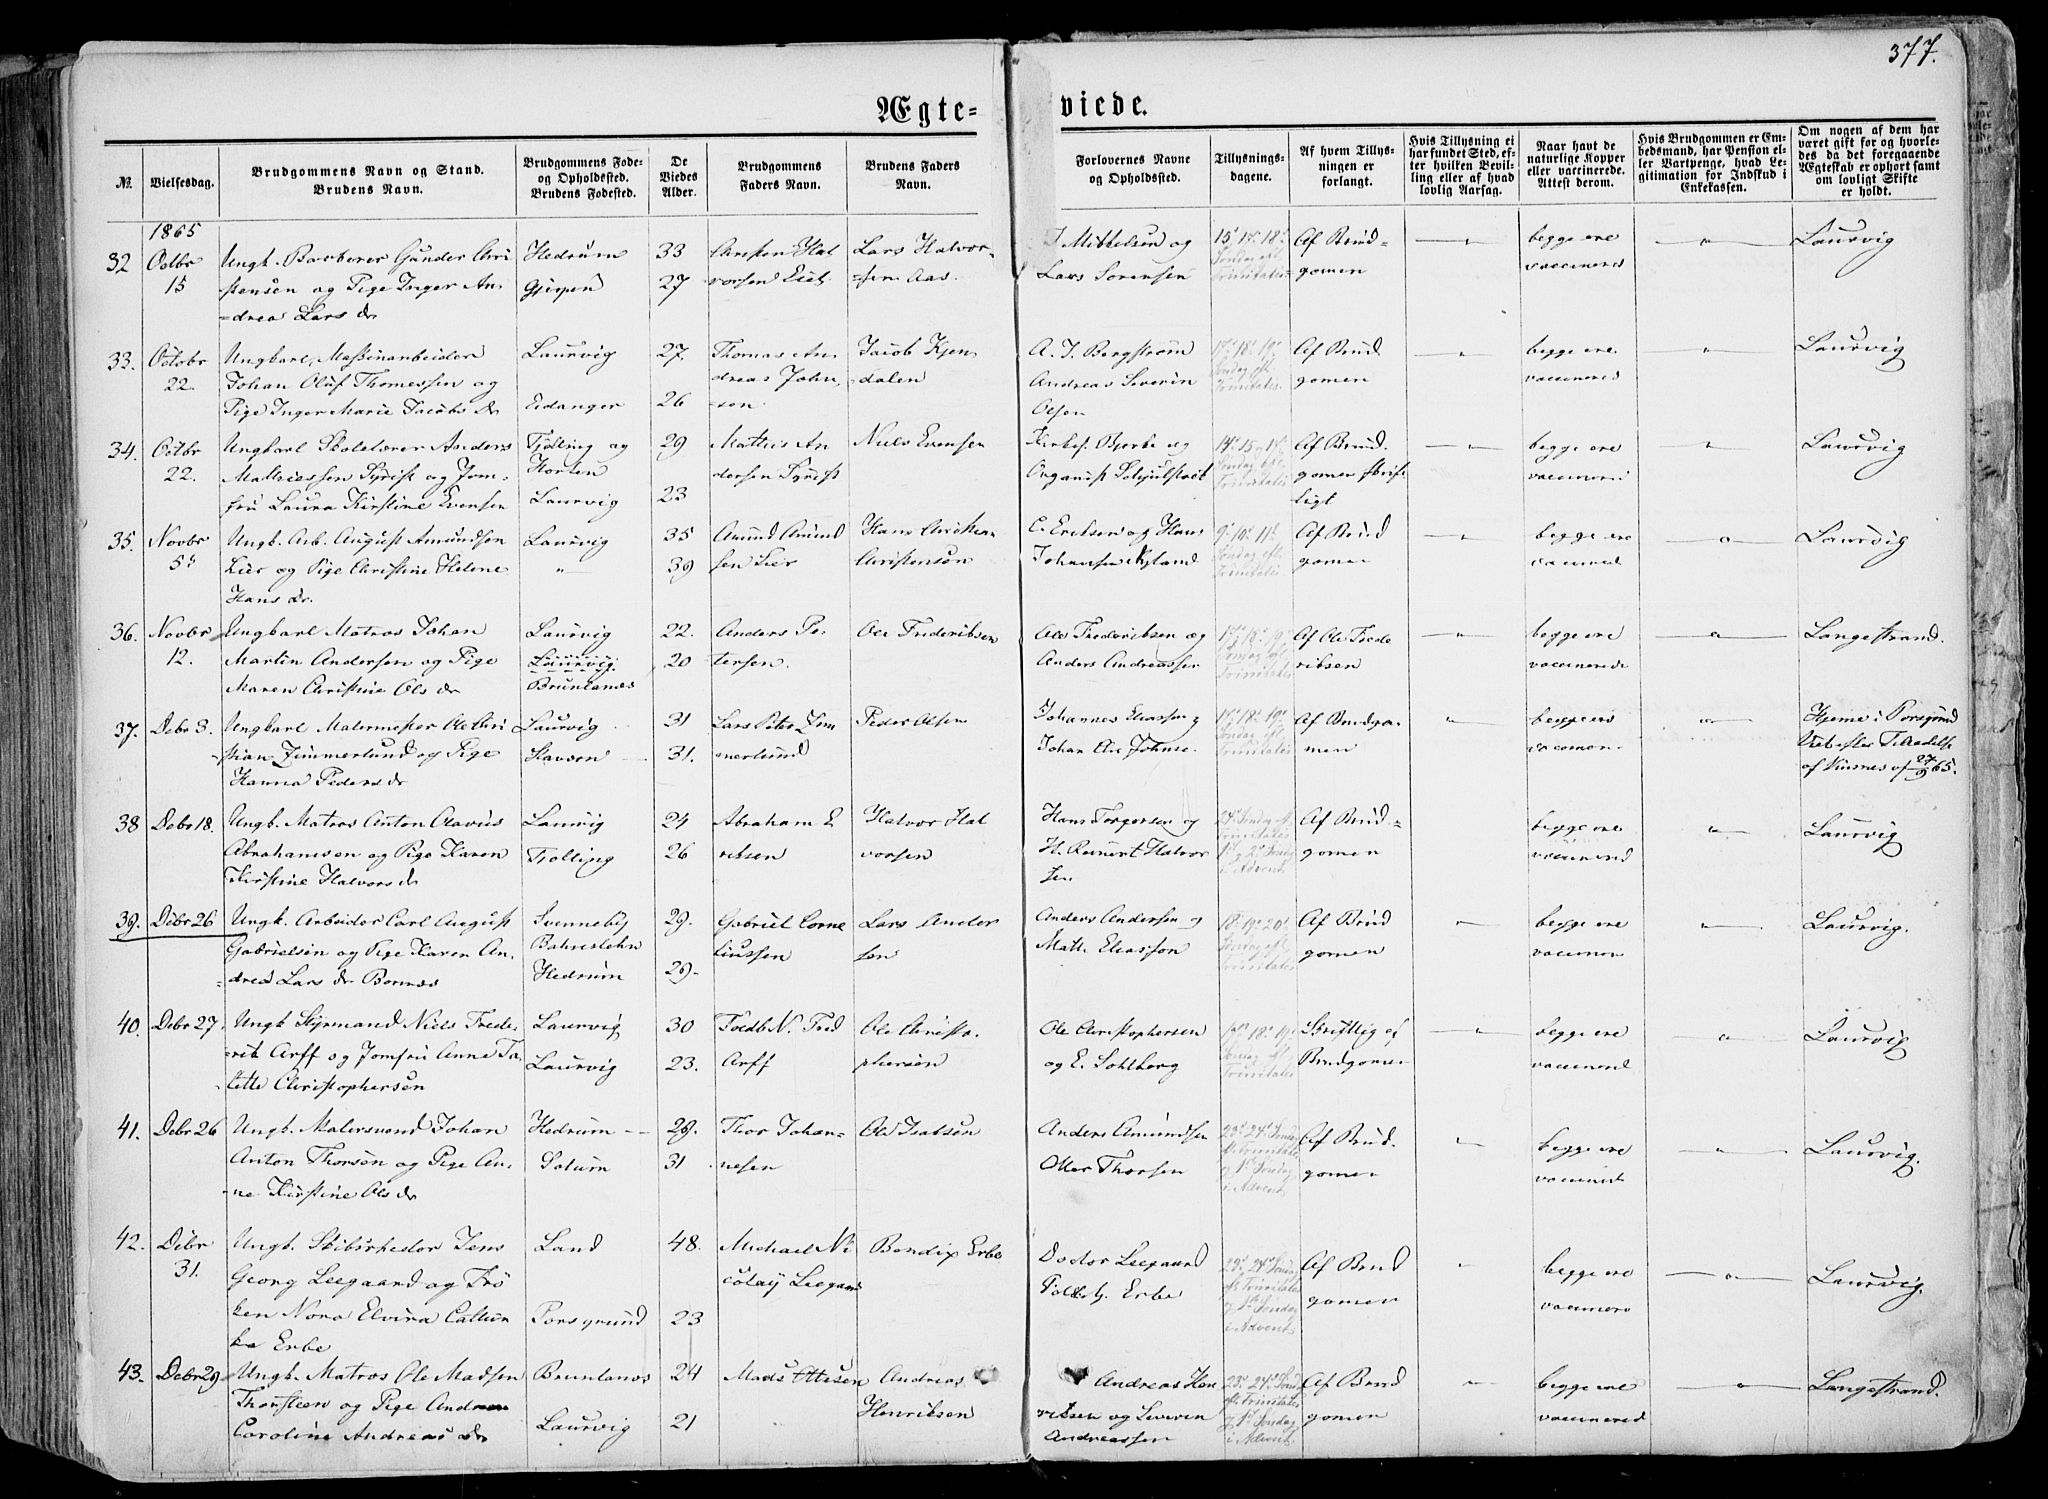 377.
Ægte-
viede.
No.
Vielsesdag.
Brudgommens Navn og Stand.
Brudens Navn.
Brudgommens Føde-
og Opholdssted.
Brudens Fødested.
De
Viedes
Alder.
Brudgommens
Faders Navn.
Brudens Faders
Navn.
Forlovernes Navne
og Opholdssted.
Tillysnings-
dagene.
Af hvem Tillys-
ningen er
forlangt.
Hvis Tillysning ei
har fundet Sted, ef-
ter hvilken Bevil-
ling eller af hvad
lovlig Aarsag.
Naar havt de
naturlige Kopper
eller vaccinerede.
Attest derom.
Hvis Brudgommen er Em-
bedsmand, har Pension el-
ler Vartpenge, hvad Le-
gitimation for Indskud i
Enkekassen.
Om nogen af dem har
været gift før og hvorle-
des da det foregaaende
Ægteskab er ophørt samt
om lovligt Skifte
er holdt.
1865
32
Octbr
15
Ungk. Gunder Chri
stensen og Pige Inger An-
drea Lars dr
Hedrum
Gjerpen
33
27
Christen Hal
vorsen
Lars Halvor-
sen Aas
J Mikkelsen og
Lars Sørensen
15 17 18
Søndag eft
Trinitatis
Af Brud-
gomen
begge ere
vaccinered
Laurvig
33.
Octobr
22.
Ungkarl, Maskinarbeider
Johan Oluf Thomessen og
Pige Inger Marie Jacobs dr
Laurvig
Eidanger
27.
26
Thomas An
dreas John
sen
Jacob Kjen
dalen
A. J. Bergstrøm
Andreas Severin
Olsen
17 18 19
Søndag eft
Trinitatis
Af Brud
gomen
begge ere
vaccinered
Laurvig
34.
Octbr
22.
Ungkarl Skolelærer Anders
Mathiessen Syrist og Jom-
fru Laura Kirstine Evensen
Tjølling og
Horten
Laurvig
29
23
Mathis An
dersen Syrist
Niels Evensen
Kirkes. Bjerke og
Organist
14 15 17
Søndag eft
Trinitatis
Af Brud.
gomen skrift
ligt
begge ere
vaccinered
Laurvig
35.
Novbr
5
Ungk. Arb. August Amundsen
Lier og Pige Christine Helene
Hans dr.
Laurvig
"
35
39
Amund Amund
sen Lier
Hans Christian
Christensen
C. Eriksen og Hans
Johansen
9 10 11
Søndag eft
Trinitatis
Af Brud
gomen
begge ere
vaccinered
Laurvig
36.
Novbr
12.
Ungkarl Matros Johan
Martin Andersen og Pige
Maren Christine Ols dr
Laurvig
Laurvig
Brunlanes
22.
20
Anders Pe-
tersen.
Ole Frederiksen
Ole Frederiksen og
Anders Andreassen
17 18 19
Søndag eft
Trinitatis
Af Ole Frede
riksen
begge ere
vaccinerede
Langestrand.
37.
Debr 3.
Ungkarl Malermester Ole Chri
stian Zimmerlund og Pige
Hanna Peders dr
Laurvig
Stavern
31
31.
Lars Peter Zim
merlund
Peder Olsen
Johannes Eliassen og
Johan
17 18 19
Søndag eft
Trinitatis
Af Brudgo-
men
begge ere
vaccinere
Hjeme i Porsgrund
Viet efter
af 27/9 65.
38
Debr 18.
Ungk. Matros Anton Olavus
Abrahamsen og Pige Karen
Kirstine Halvors dr
Laurvig
Tjølling
24
26
Abraham E
riksen
Halvor Hal
vorsen
Hans Torgersen og
H. Reinert Halvor
sen
24 Søndag eft
Trinitatis
1 og 2 Søndag
i Advent
Af Brud-
gomen
begge ere
vaccinered
Laurvig
39.
Debr 26
Ungk. Arbeider Carl August
Gabrielsen og Pige Karen An-
drea Lars dr
Svenneby
Hedrum
29.
29.
Gabriel Corne
liussen
Lars Ander
sen
Anders Andersen og
Math. Eliassen
18 19 20
Søndag eft
Trinitatis
Af Brud
gomen
begge ere
vaccinere
Laurvig.
40.
Debr 27
Ungk Styrmand Niels Frede-
rik Arff og Jomfru Anne Ta-
lette Christophersen
Laurvig
Laurvig
30
23.
Toldb N. Fred
Arff
Ole Christo-
phersen
Ole Christophersen
og E. Sohlberg
17 18 19
Søndag eft
Trinitatis
Skriftlig af
Brudgomen
begge ere
vaccinered
Laurvig
41.
Debr 26
Ungk. Malersvend Johan
Anton Thorsen og Pige An-
ne Kirstine Ols dr
Hedrum
Solum
29.
31
Thor Johan-
nesen
Ole Isaksen
Anders Amundsen
Oller Thorsen
23 24 Sønd
eft Trinitatis
og 1 Søndag
i Advent
Af Brud.
gomen
begge ere
vaccinered
Laurvig.
42.
Debr
31.
Ungk. Skibsrheder Jens
Georg Leegaard og Frø
ken Nora Elvira Cathrin
ka Erbe
Land
Porsgrund
48.
23
Michael Ni
colay Leegaard
Bendix Erbe
Doctor Leegaard
Toldb. G. Erbe
23 24 Søndag
eft Trinitatis
og 1 Søndag
i Advent
Af Brud
gomen
begge ere
vaccinere
Laurvig.
43.
Debr 29
Ungk. Matros Ole Madsen
Thorsteen og Pige Andrea
Caroline Andreas dr
Brunlanes
Laurvig
24
21
Mads Ottesen
Andreas
Henriksen
Andreas Hen
riksen og Severin
Andreassen
23 24 Sønd
eft Trinitatis
og 1 Søndag
i Advent
Af Brud
gomen
begge ere
vaccinered
Langestrand.